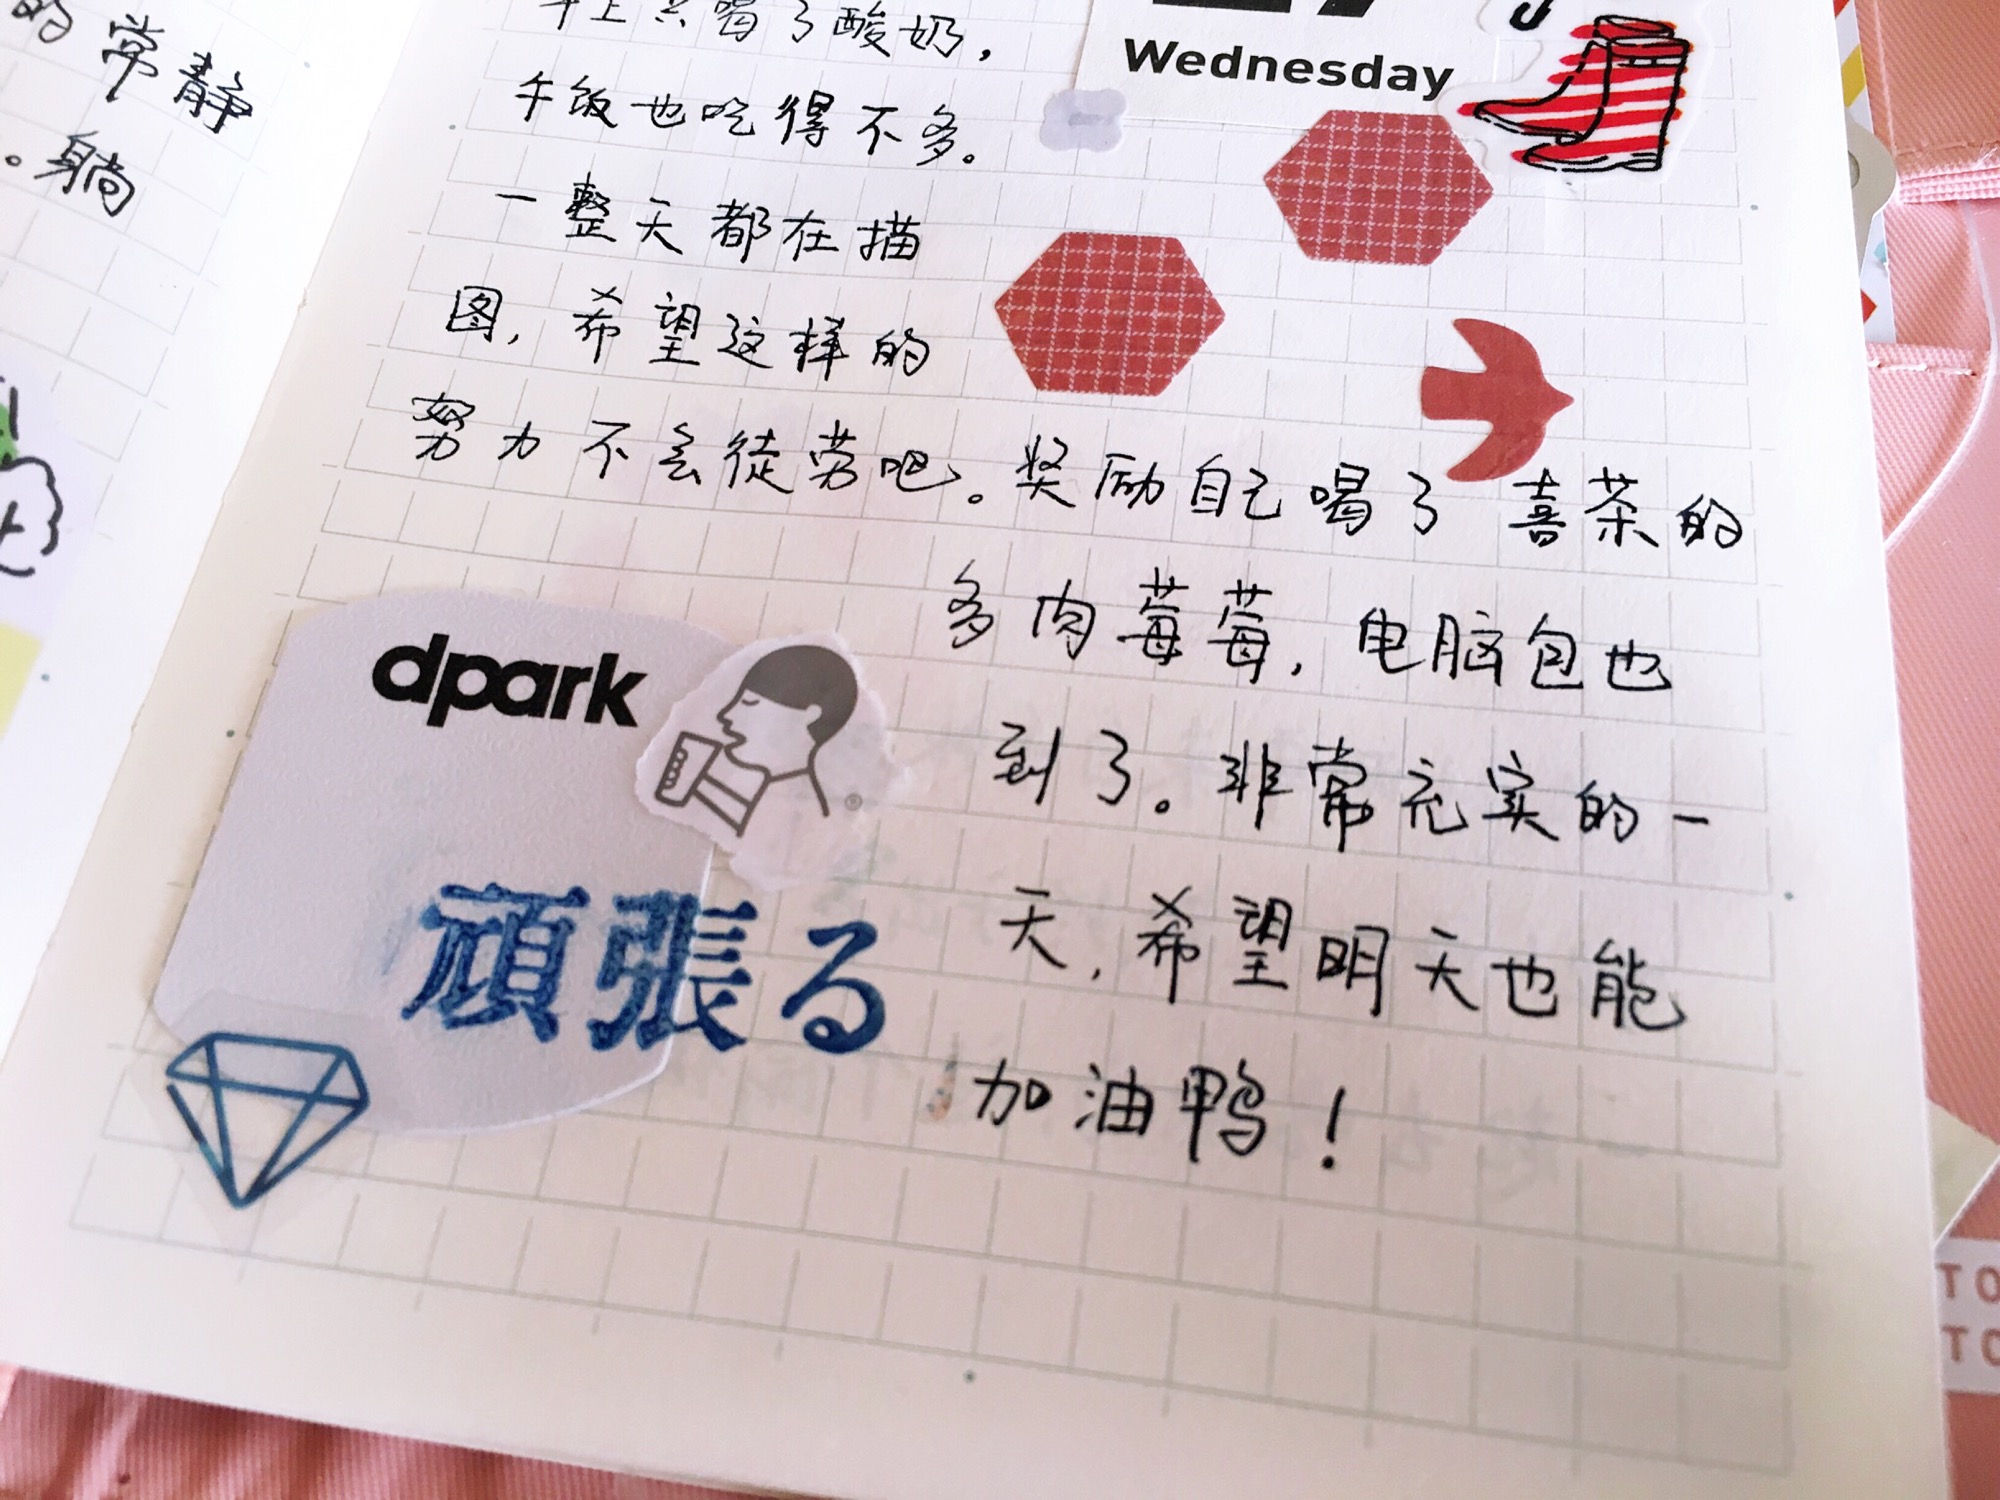 的常静
。躺
早上只喝了酸奶，
Wednesday
午饭也吃得不多。
一整天都在描
图，希望这样的
努力不会徒劳吧。奖励自己喝了喜茶的
多肉莓莓，电脑包也
到了。非常充实的一
天，希望明天也能
加油鸭！
dpark
®
頑張る
TO
TO